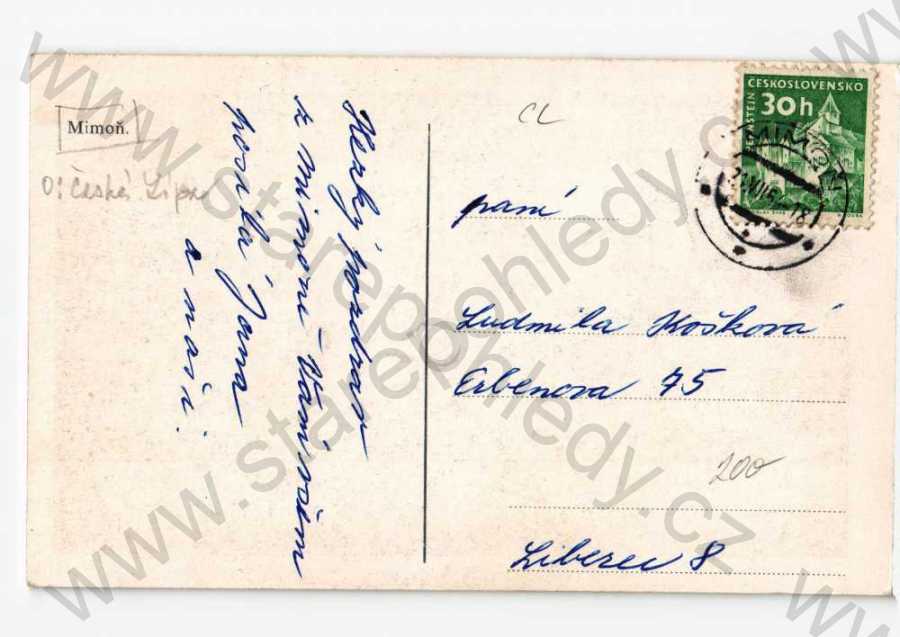 Mimoň.
o: Česká Lípa
Hezký pozdrav
z Mimoně - Vám všem
posílá Jana
a naši.
CL
ČESKOSLOVENSKO
30h
PERNŠTEJN
MIMOŇ
paní
Ludmila Košková
Erbenova 75
200
Liberec 8
www.starepohledy.cz
www.starepohledy.cz